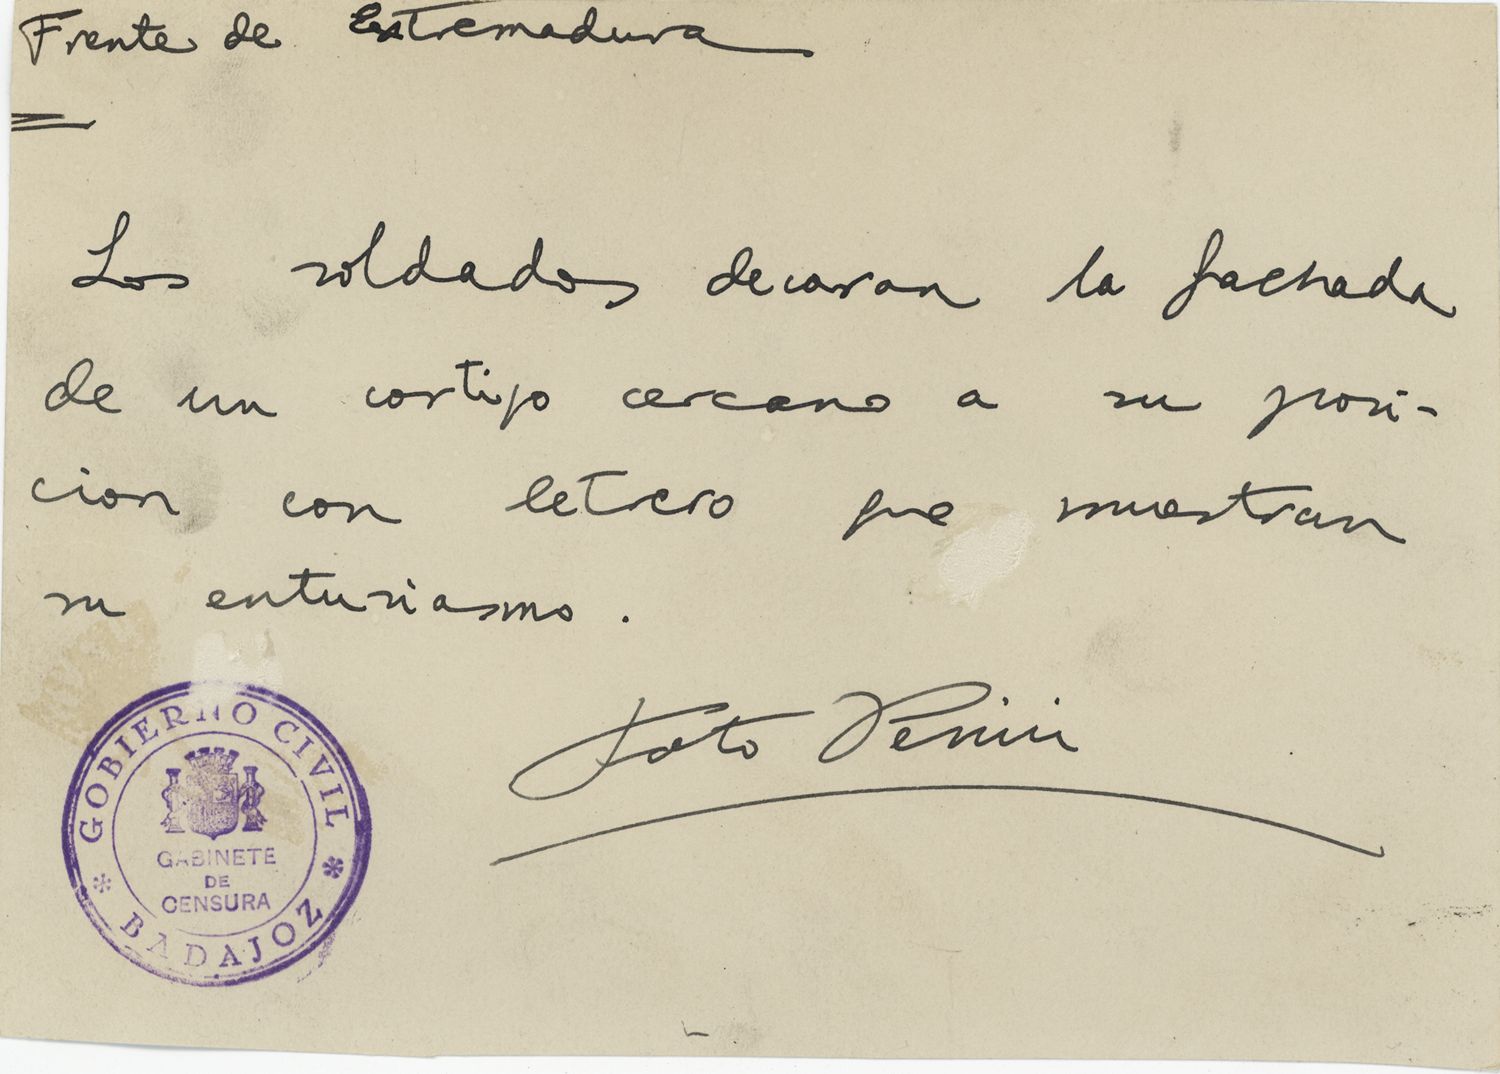 Frente de Extremadura
Los soldados decoran la fachada
de un cortijo cercano a su posi-
cion con letrero que muestran
su entusiasmo.
Foto
GOBIERNO CIVIL
GABINETE
DE
CENSURA
* BADAJOZ *